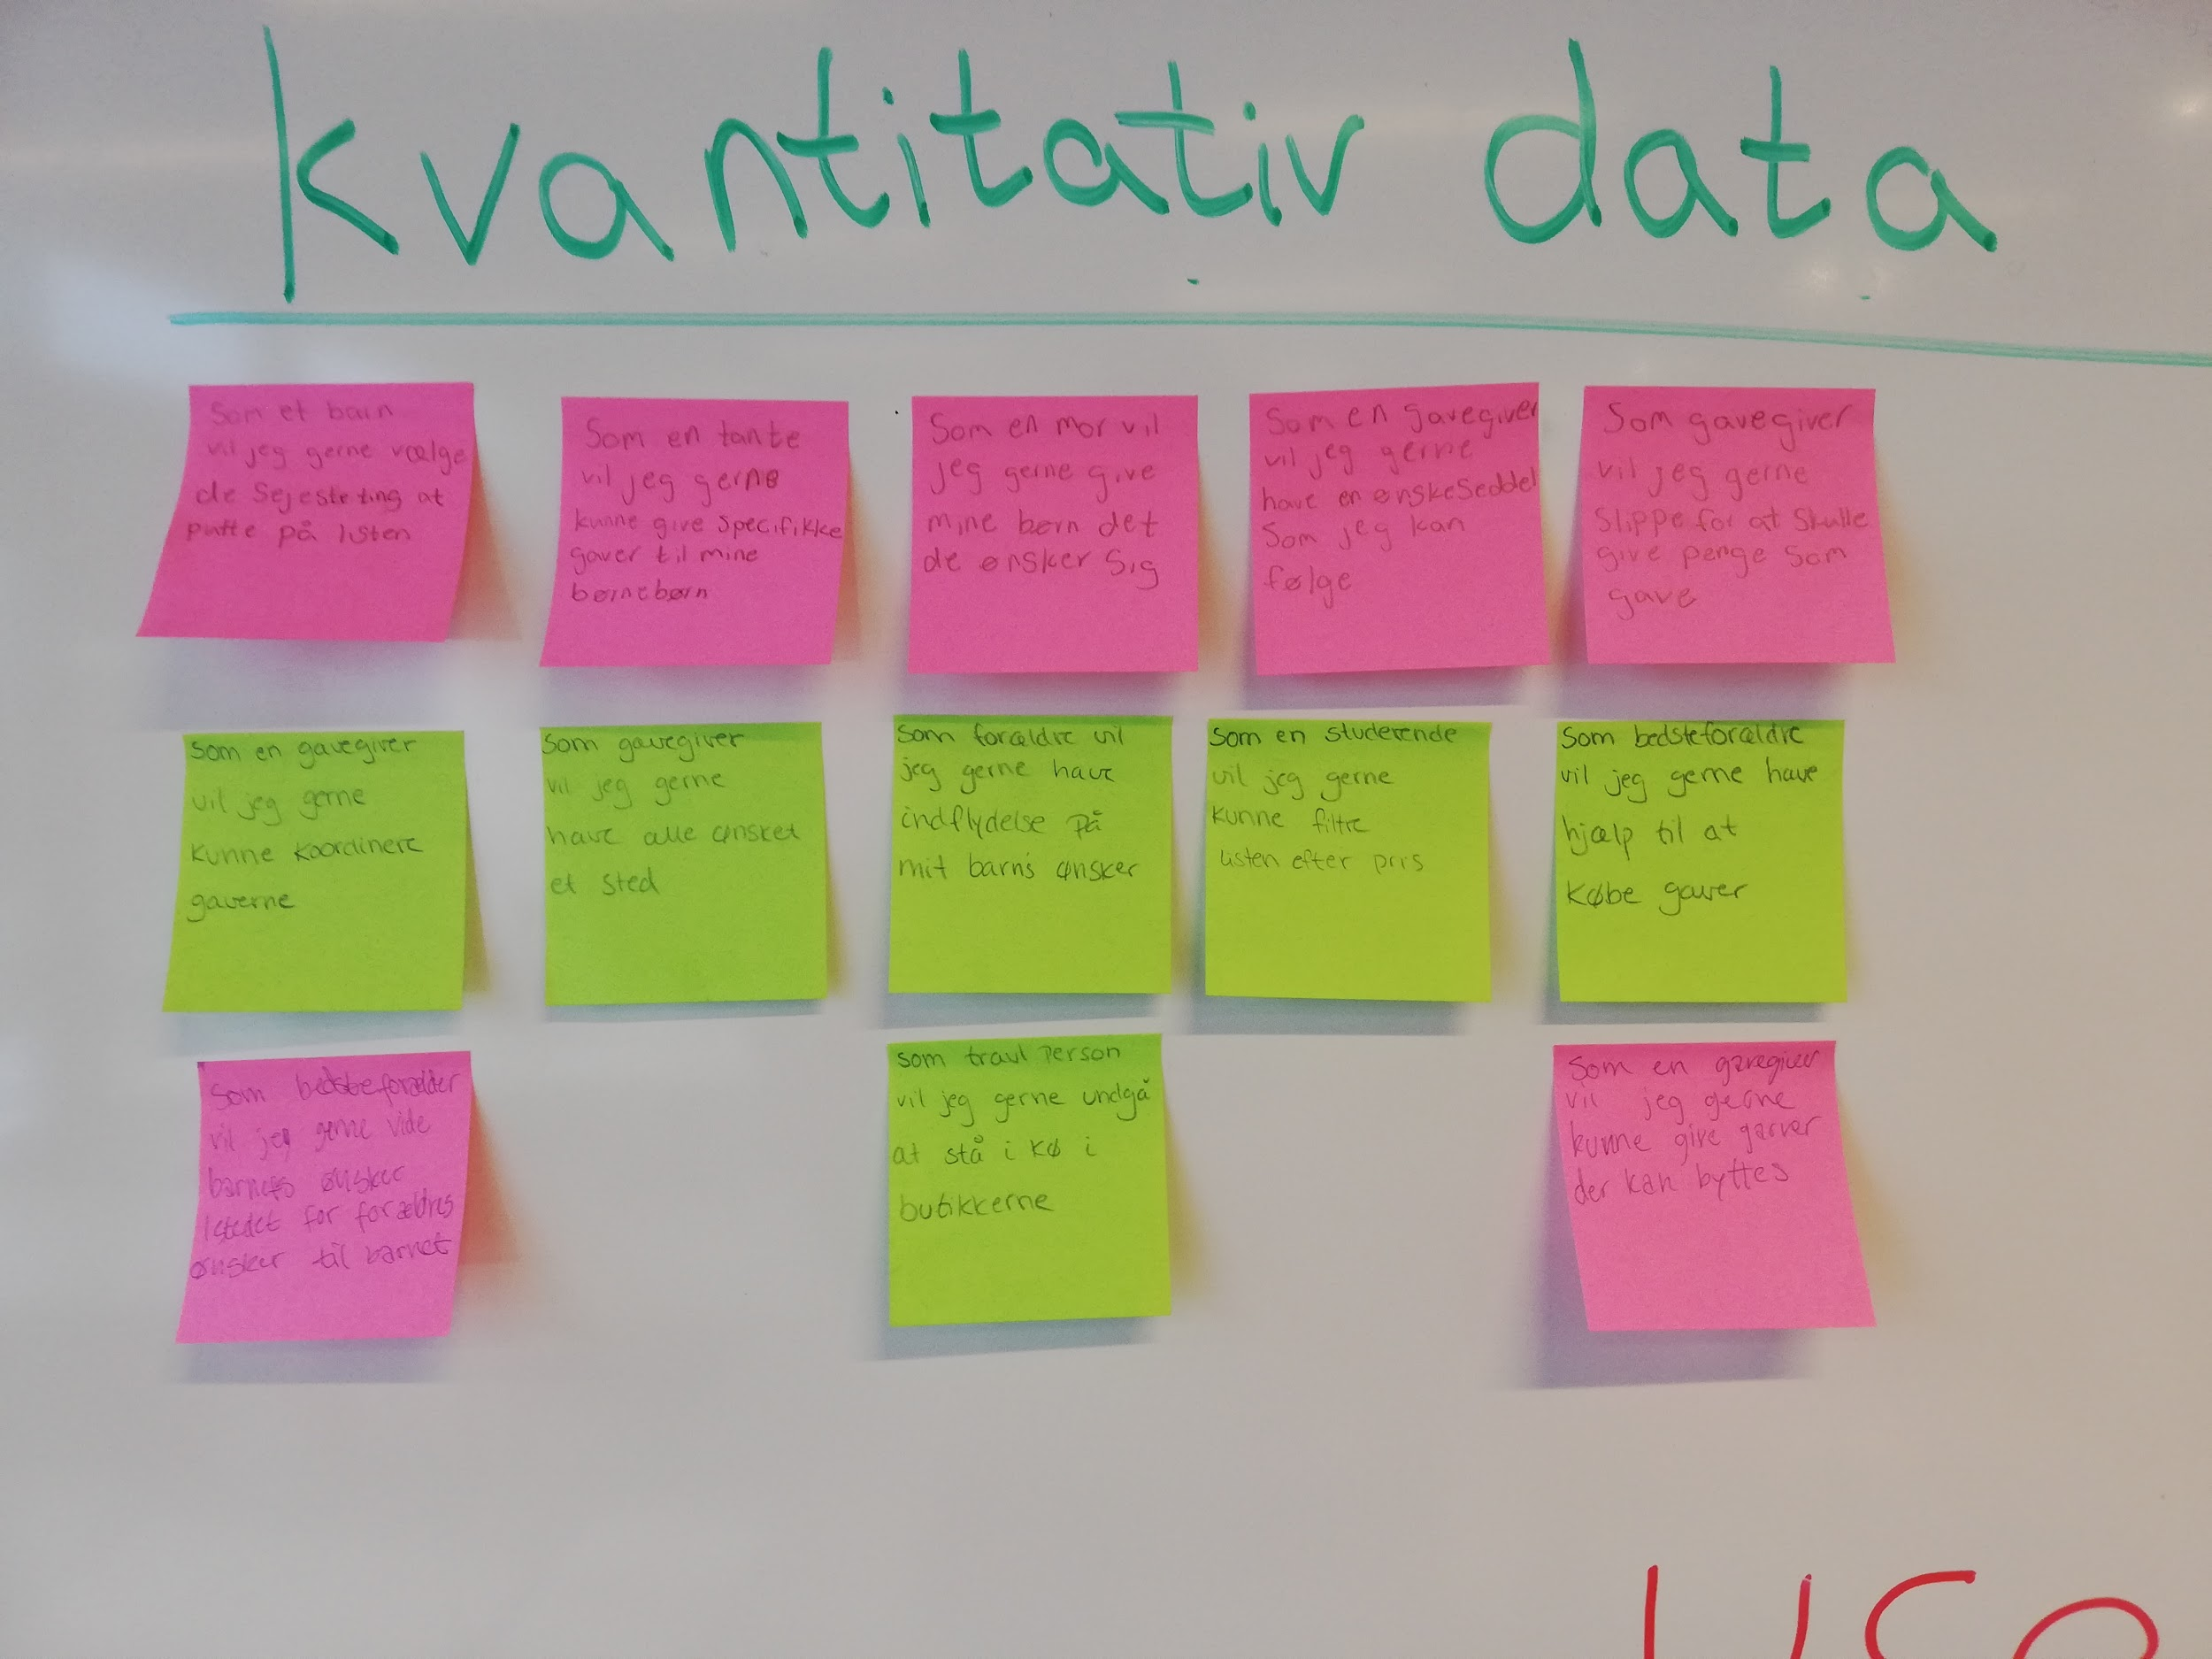 kvantitativ data
Som et barn
vil jeg gerne vælge
de sejeste ting at
putte på listen
Som en tante
vil jeg gerne
kunne give specifikke
gaver til mine
børnebørn
Som en mor vil
jeg gerne give
mine børn det
de ønsker sig
Som en gavegiver
vil jeg gerne
have en ønskeseddel
som jeg kan
følge
Som gavegiver
vil jeg gerne
slippe for at skulle
give penge som
gave
Som en gavegiver
vil jeg gerne
kunne koordinere
gaverne
Som gavegiver
vil jeg gerne
have alle ønsket
et sted
Som forældre vil
jeg gerne have
indflydelse på
mit barns ønsker
Som en studerende
vil jeg gerne
kunne filtre
listen efter pris
Som bedsteforældre
vil jeg gerne have
hjælp til at
købe gaver
Som bedsteforælder
vil jeg gerne vide
barnets ønsker
istedet for forældres
ønsker til barnet
som travl person
vil jeg gerne undgå
at stå i kø i
butikkerne
Som en gavegiver
vil jeg gerne
kunne give gaver
der kan byttes